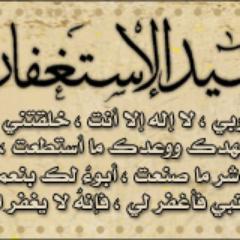 يد الإستغفار
ربي ، لا إله إلا أنت ، خلقتني
هدك ووعدك ما أستطعت ،
شر ما صنعت ، أبوءُ لك بنعم
نبي فأغفر لي ، فإنهُ لا يغفر